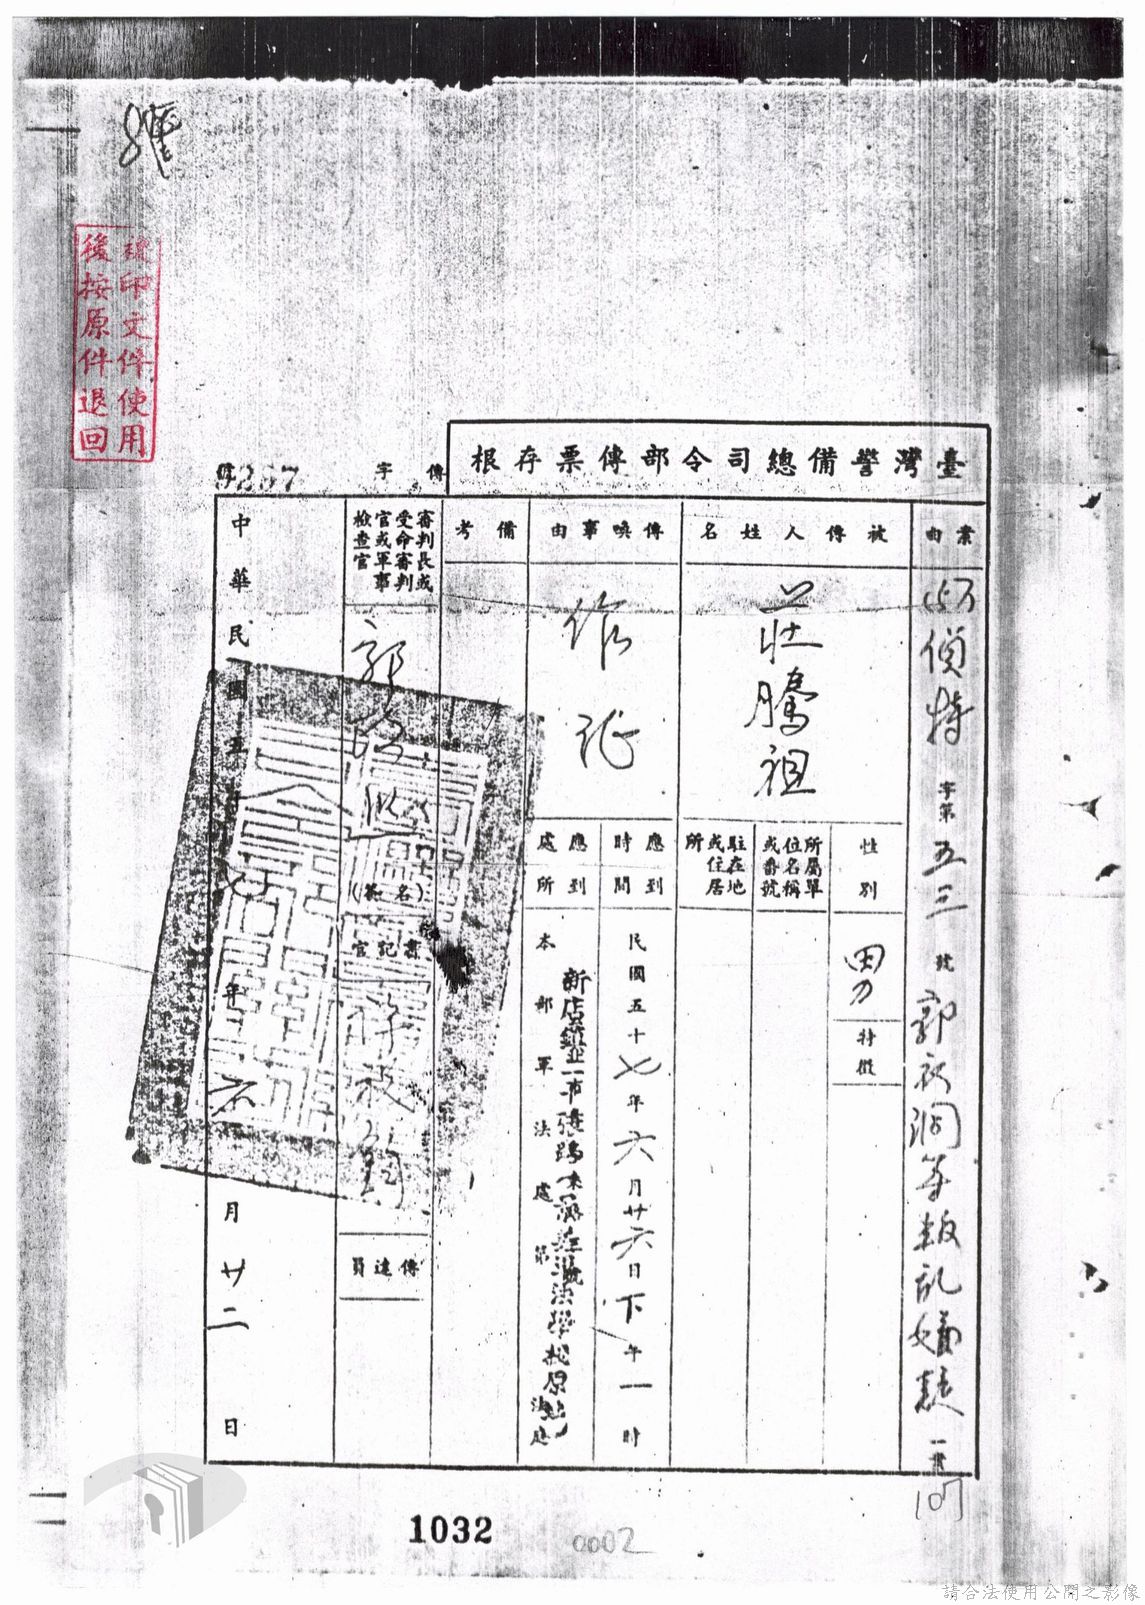 複印文件使用
後按原件退回
臺灣警備總司令部傳票存根
傳字
267
案由
(57)偵特字第五三號郭衣洞等叛乱嫌疑一案
107
被傳人姓名
莊騰祖
性別
男
特徵
所屬單位名稱或番號
駐在地或住居所
傳喚事由
作証
應到時間
民國五十七年六月廿六日下午一時
應到處所
本部軍法處第法庭
新店鎮
法學校原址
備考
審判長或受命審判官或軍事檢查官
郭
(簽名)
書記官
傳達員
中華民國五十七年六月廿二日
1032
0002
請合法使用公開之影像